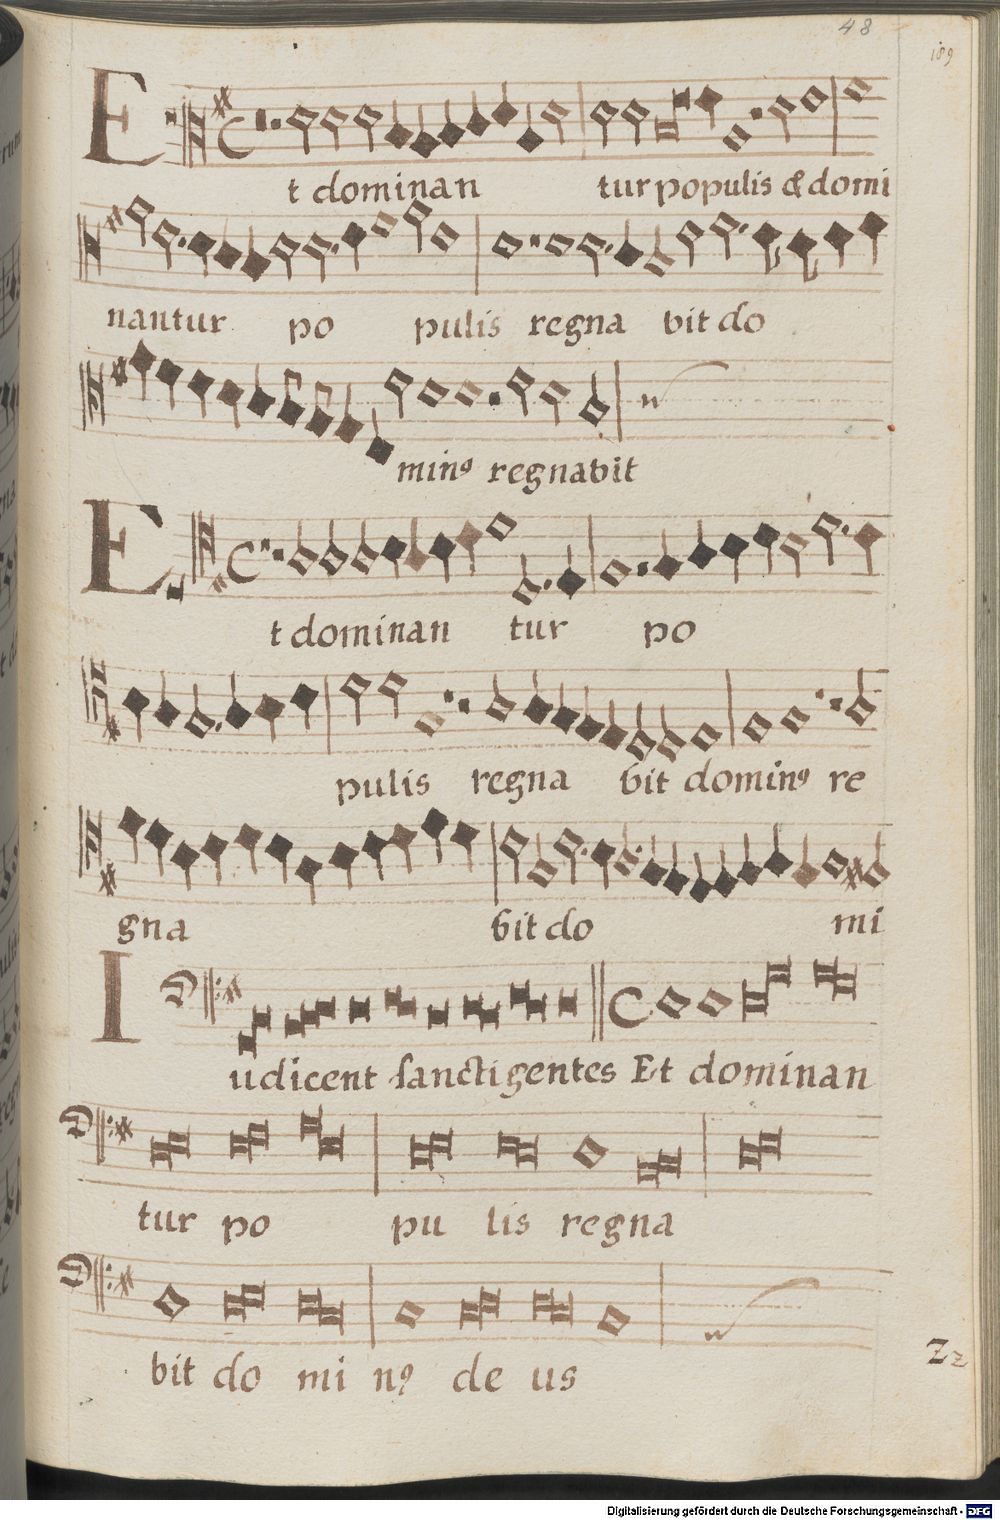 48
189
Et dominan tur populis & domi
nantur po pulis regna bit do
minꝰ regnabit
Et dominan tur po
pulis regna bit dominꝰ re
gna bit do mi
Iudicent sancti gentes Et dominan
tur po pu lis regna
bit do mi nꝰ de us
Zz
Digitalisierung gefördert durch die Deutsche Forschungsgemeinschaft - DFG